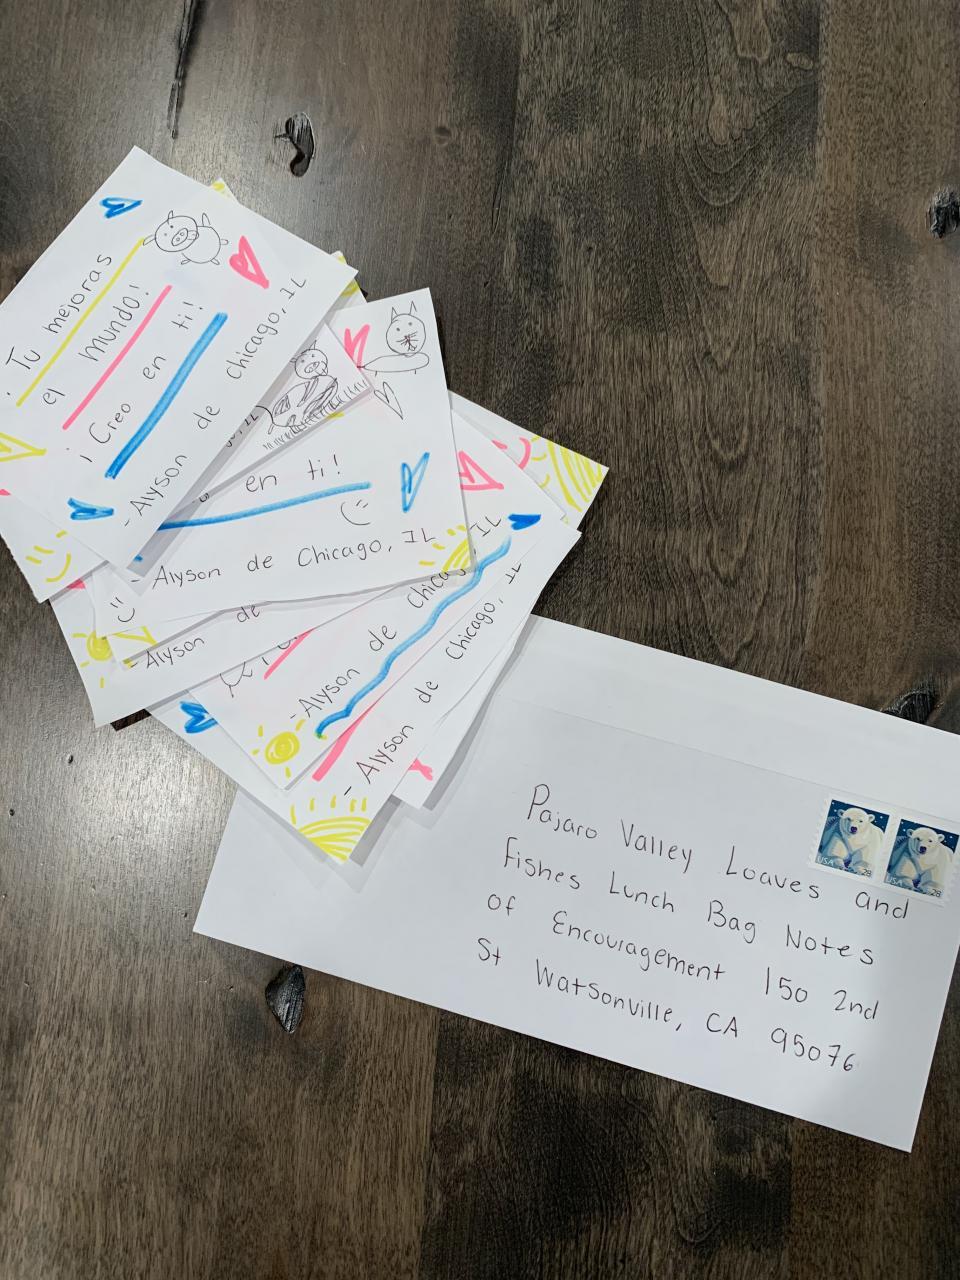 ¡Tu mejoras
el mundo!
¡Creo en ti!
-Alyson de Chicago, IL
en ti!
- Alyson de Chicago, IL
-Alyson de
-Alyson de Chica IL
- Alyson de Chicago, IL
Pajaro Valley Loaves and
Fishes Lunch Bag Notes
of Encouragement 150 2nd
St Watsonville, CA 95076
USA 28
USA 28